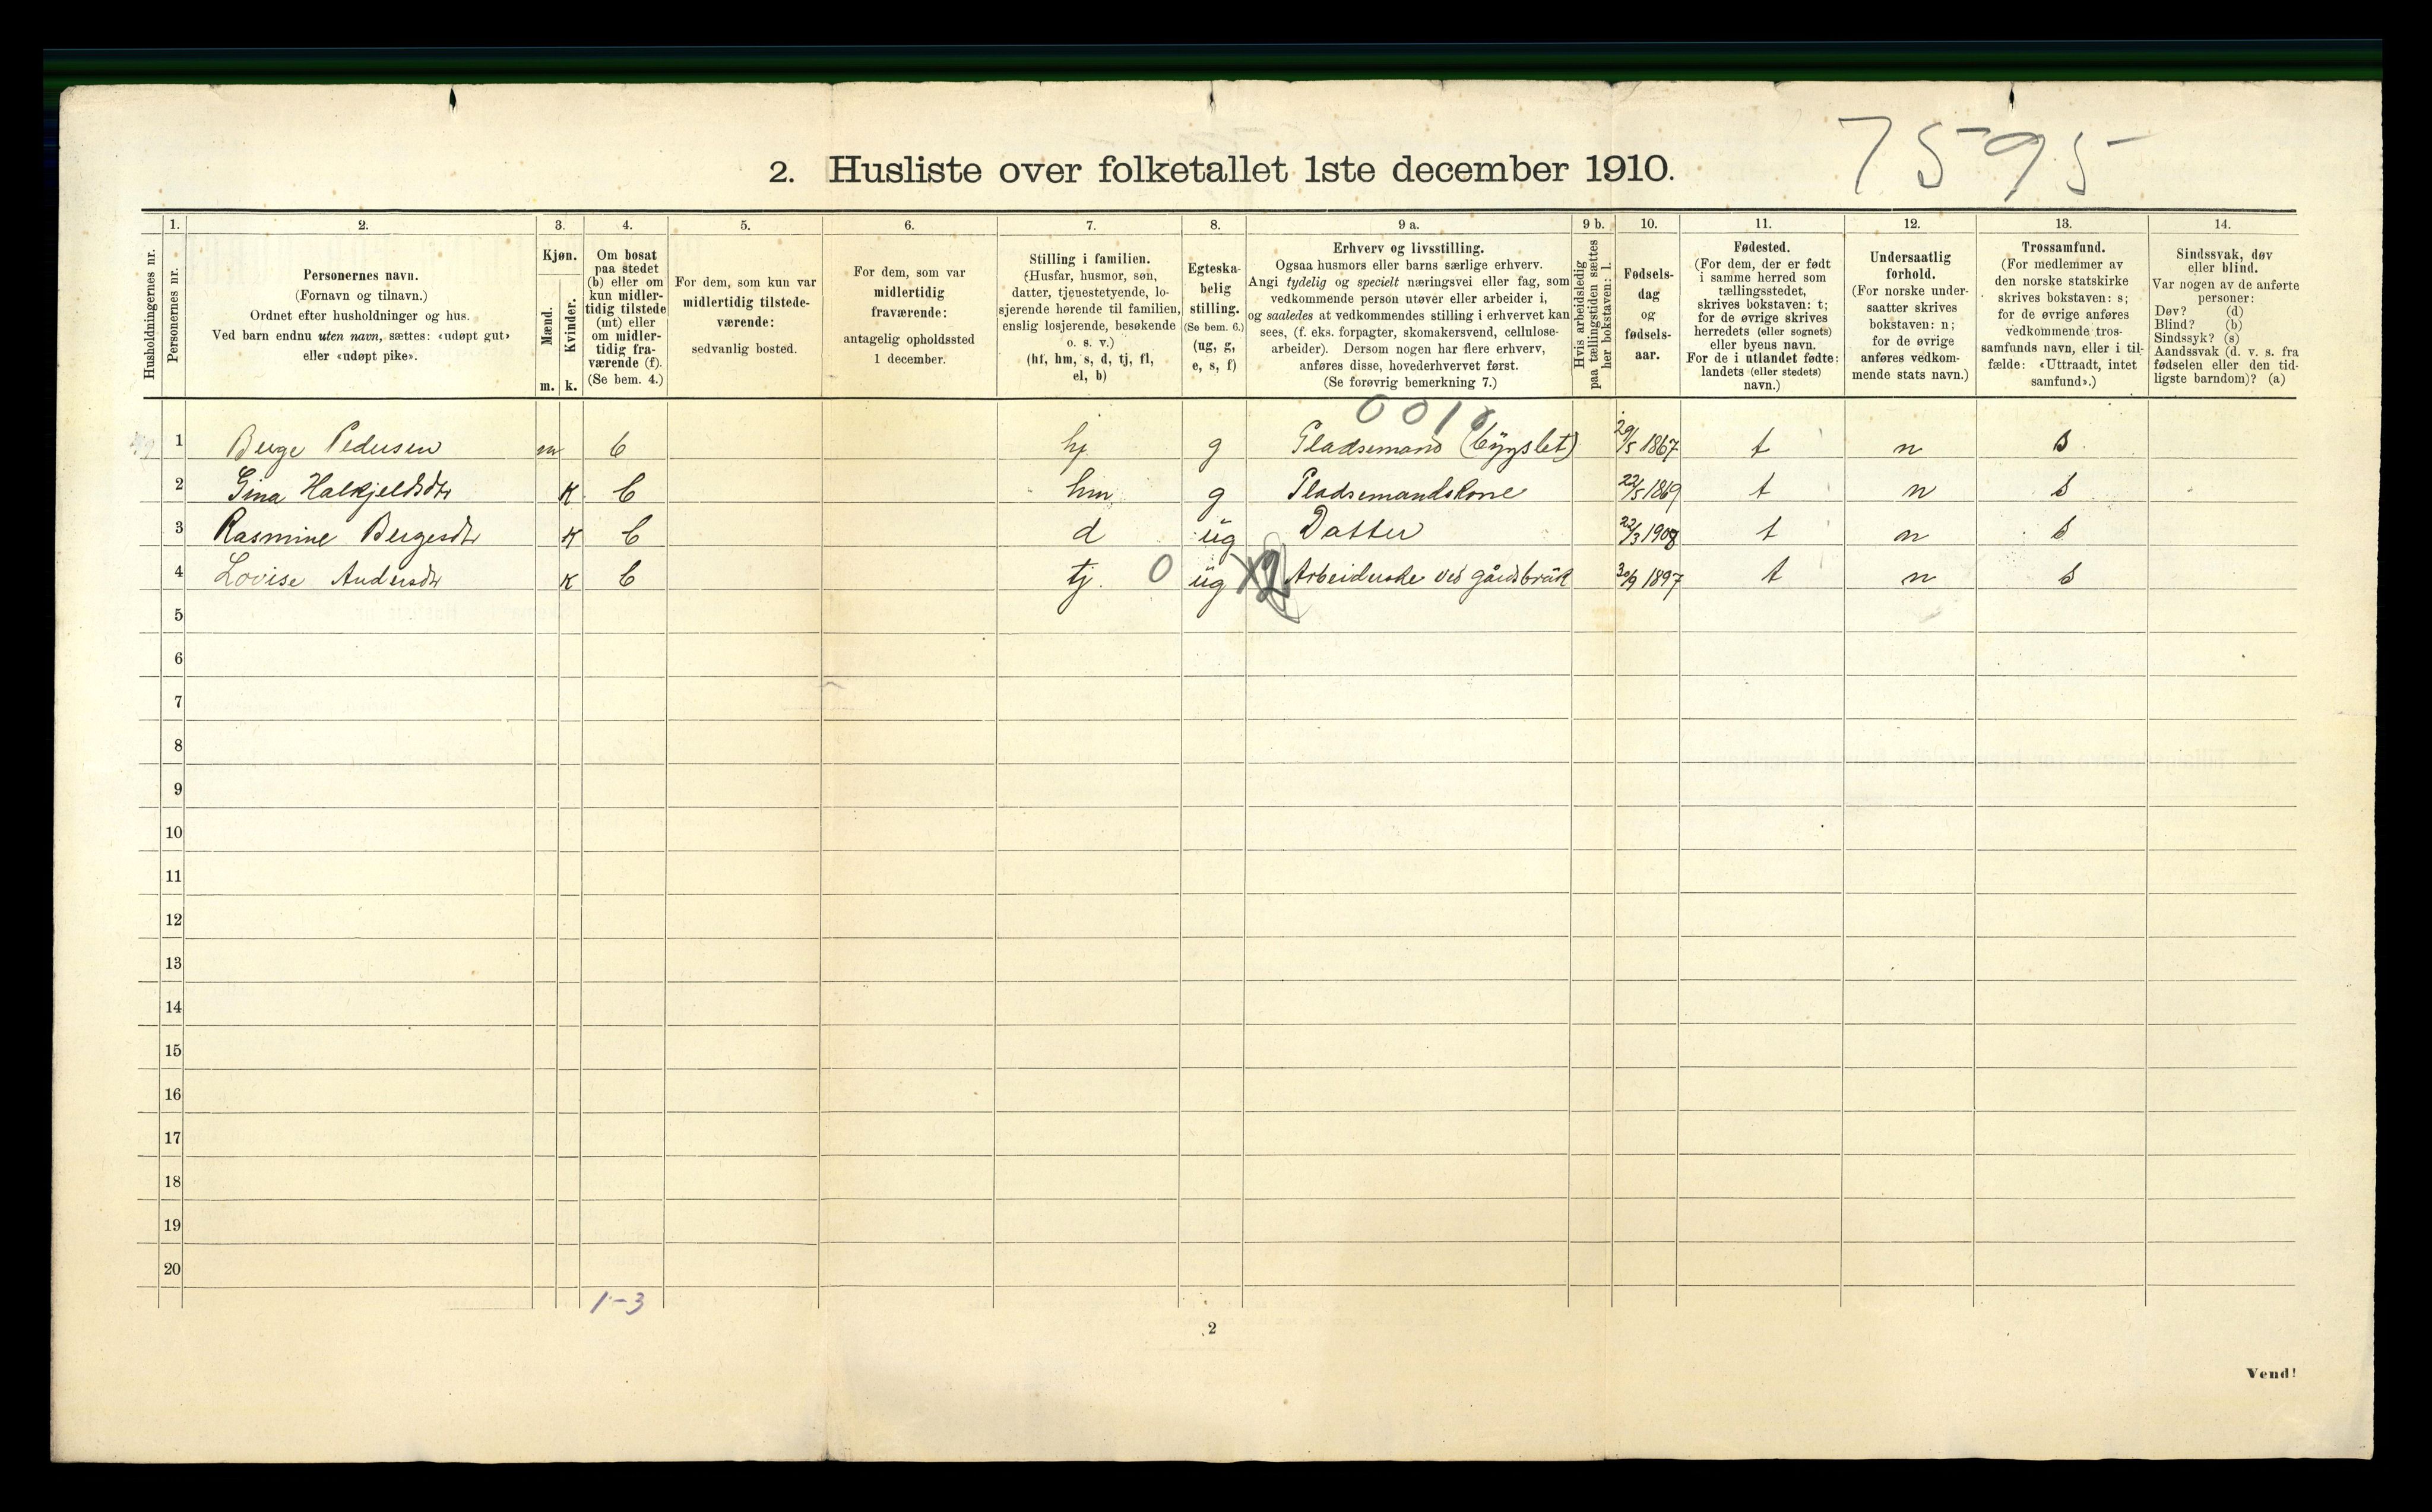 7595
2. Husliste over folketallet 1ste december 1910.
1. 2. 3. 4. 5. 6. 7. 8. 9 a. 9 b. 10. 11. 12. 13. 14.
Husholdningernes nr.
Personernes nr.
Personernes navn.
(Fornavn og tilnavn.)
Ordnet efter husholdninger og hus.
Ved barn endnu uten navn, sættes: «udøpt gut»
eller «udøpt pike».
Kjøn.
Mænd.
Kvinder.
m. k.
Om bosat
paa stedet
(b) eller om
kun midler-
tidig tilstede
(mt) eller
om midler-
tidig fra-
værende (f).
(Se bem. 4.)
For dem, som kun var
midlertidig tilstede-
værende:
sedvanlig bosted.
For dem, som var
midlertidig
fraværende:
antagelig opholdssted
1 december.
Stilling i familien.
(Husfar, husmor, søn,
datter, tjenestetyende, lo-
sjerende hørende til familien,
enslig losjerende, besøkende
o. s. v.)
(hf, hm, s, d, tj, fl,
el, b)
Egteska-
belig
stilling.
(Se bem. 6.)
(ug, g,
e, s, f)
Erhverv og livsstilling.
Ogsaa husmors eller barns særlige erhverv.
Angi tydelig og specielt næringsvei eller fag, som
vedkommende person utøver eller arbeider i,
og saaledes at vedkommendes stilling i erhvervet kan
sees, (f. eks. forpagter, skomakersvend, cellulose-
arbeider). Dersom nogen har flere erhverv,
anføres disse, hovederhvervet først.
(Se forøvrig bemerkning 7.)
Hvis arbeidsledig
paa tællingstiden sættes
her bokstaven: l.
Fødsels-
dag
og
fødsels-
aar.
Fødested.
(For dem, der er født
i samme herred som
tællingsstedet,
skrives bokstaven: t;
for de øvrige skrives
herredets (eller sognets)
eller byens navn.
For de i utlandet fødte:
landets (eller stedets)
navn.)
Undersaatlig
forhold.
(For norske under-
saatter skrives
bokstaven: n;
for de øvrige
anføres vedkom-
mende stats navn.)
Trossamfund.
(For medlemmer av
den norske statskirke
skrives bokstaven: s;
for de øvrige anføres
vedkommende tros-
samfunds navn, eller i til-
fælde: «Uttraadt, intet
samfund».)
Sindssvak, døv
eller blind.
Var nogen av de anførte
personer:
Døv? (d)
Blind? (b)
Sindssyk? (s)
Aandssvak (d. v. s. fra
fødselen eller den tid-
ligste barndom)? (a)
1 Berge Pedersen m b hf g Pladsemand (bygslet) 29/5 1867 t n s
2 Gina Halkjeldsdtr k b hm g Pladsemandskone 22/5 1869 t n s
3 Rasmine Bergesdtr k b d ug Datter 22/3 1908 t n s
4 Lovise Andersdtr k b tj. 0 ug Arbeiderske ved gårdsbruk 30/9 1897 t n s
5
6
7
8
9
10
11
12
13
14
15
16
17
18
19
20
1-3
2
Vend!